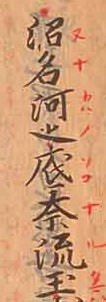 沼名河之底奈流玉
ヌナカハノソコナル